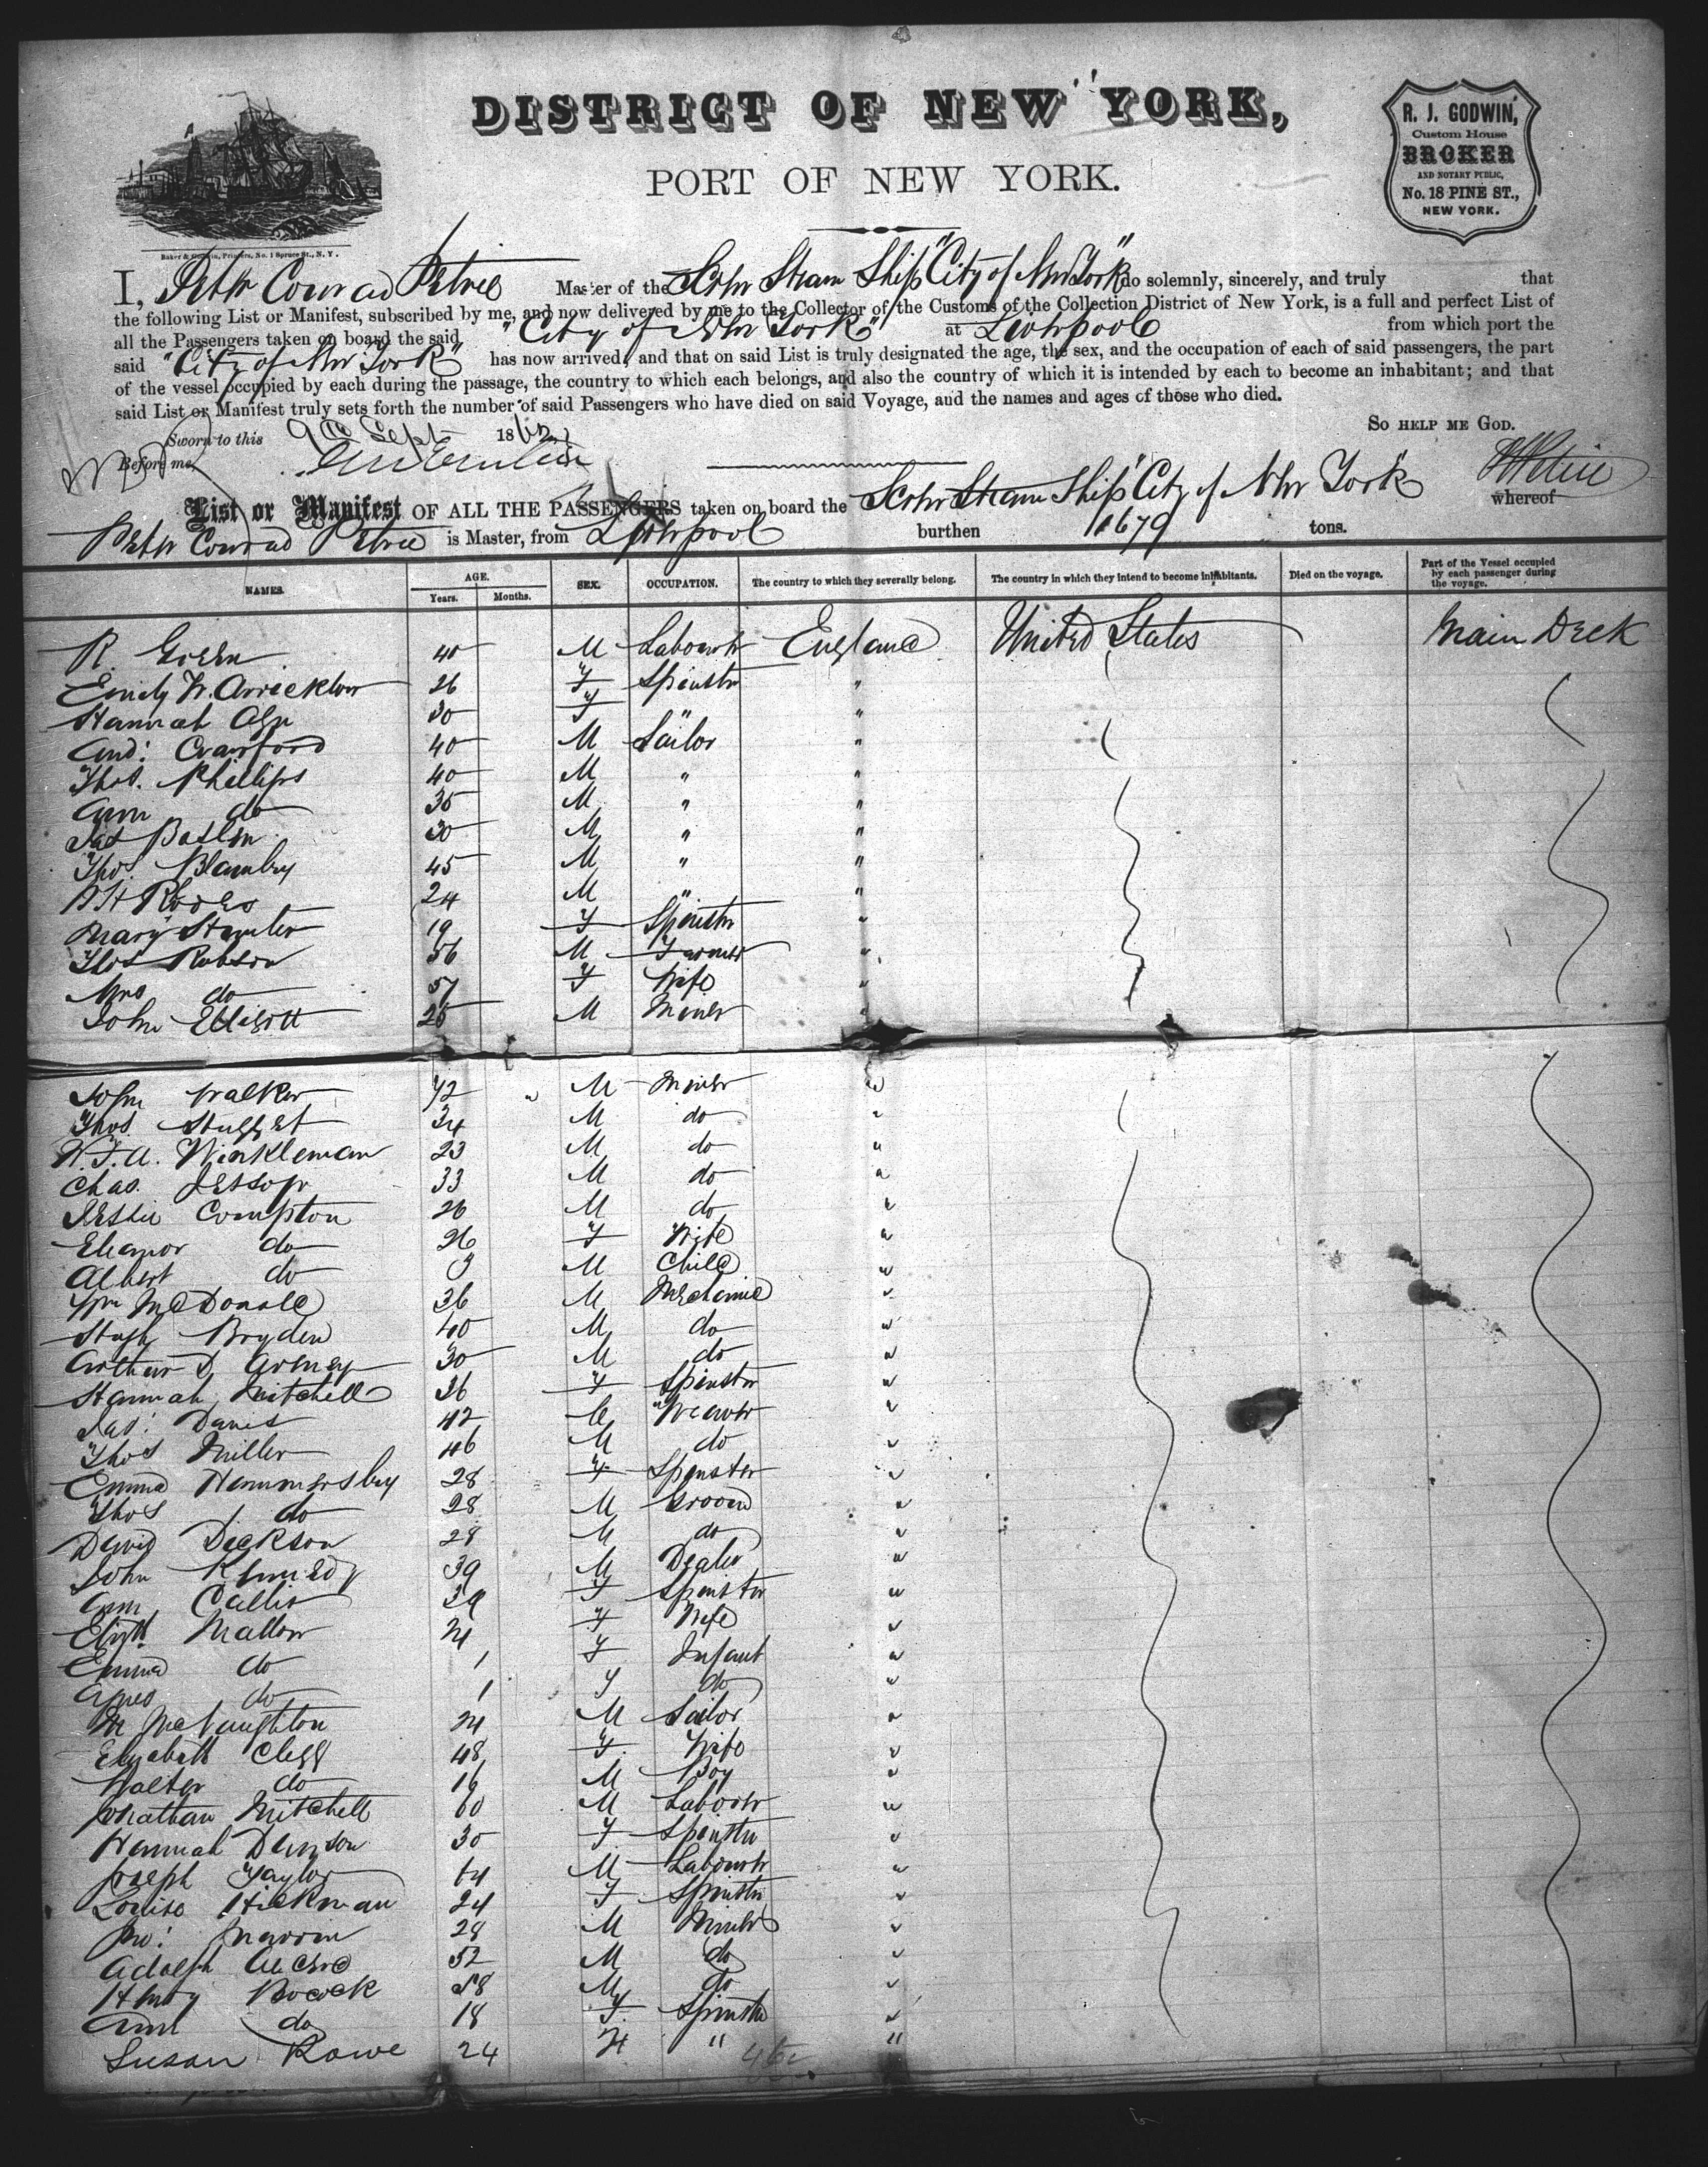 DISTRICT OF NEW YORK,
PORT OF NEW YORK.
R. J. GODWIN,
Custom House
BROKER
AND NOTARY PUBLIC,
No. 18 PINE ST.,
NEW YORK.
Baker & Godwin, Printers, No. 1 Spruce St., N. Y.
I, Peter Conrad Petrie Master of the Screw Steam Ship "City of New York" do solemnly, sincerely, and truly that
the following List or Manifest, subscribed by me, and now delivered by me to the Collector of the Customs of the Collection District of New York, is a full and perfect List of
all the Passengers taken on board the said "City of New York" at Liverpool from which port the
said "City of New York" has now arrived, and that on said List is truly designated the age, the sex, and the occupation of each of said passengers, the part
of the vessel occupied by each during the passage, the country to which each belongs, and also the country of which it is intended by each to become an inhabitant; and that
said List or Manifest truly sets forth the number of said Passengers who have died on said Voyage, and the names and ages of those who died.
So HELP ME GOD.
Sworn to this 9th Sept 1862
Before me
List or Manifest OF ALL THE PASSENGERS taken on board the Screw Steam Ship "City of New York" whereof
Peter Conrad Petrie is Master, from Liverpool burthen 1679 tons.
NAMES. AGE. Years. Months. SEX. OCCUPATION. The country to which they severally belong. The country in which they intend to become inhabitants. Died on the voyage. Part of the Vessel occupied by each passenger during the voyage.
R. Green 40 M Labourer England United States Main Deck
Emily W. 26 F Spinster "
Hannah 30 F " "
And: Crawford 40 M Tailor "
Thos. Phillips 40 M " "
Ann do 35 M " "
Jas 30 M " "
Thos. 45 M " "
24 M " "
Mary 19 F Spinster "
Thos Robson 56 M Farmer "
Mrs do 57 F Wife "
John Elliott 25 M Miner "
John Walker 42 " M Miner "
Thos 34 M do "
W. F. A. Winkleman 23 M do "
Chas. Jessop 33 M do "
Jessie Compton 26 M do "
Eleanor do 26 F Wife "
Albert do 3 M Child "
Wm McDonald 36 M Mechanic "
Hugh Bryden 40 M do "
Arthur D. 30 M do "
Hannah Mitchell 36 F Spinster "
Jas: Davis 42 M Weaver "
Thos Miller 46 M do "
Emma Hemmersley 28 F Spinster "
Thos do 28 M Groom "
David Dickson 28 M do "
John Kennedy 39 M Dealer "
Ann 39 F Spinster "
Elizth. Mallow 24 F Wife "
Emma do 1 F Infant "
Agnes do 1 F do "
M McNaughton 24 M Tailor "
Elizabeth Clegg 48 F Wife "
Walter do 16 M Boy "
Jonathan Mitchell 60 M Labourer "
Hannah Denison 30 F Spinster "
Joseph Taylor 64 M Labourer "
Louise Hickman 24 F Spinster "
Jno: 28 M Miner "
Adolph 52 M do "
Henry Bocock 58 M do "
Ann do 18 F Spinster "
Susan Rowe 24 F " "